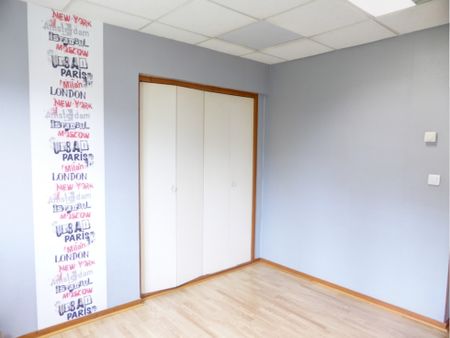 NEW-YORK
Amsterdam
Istanbul
MOSCOW
PARIS
Milan
LONDON
NEW-YORK
Amsterdam
Istanbul
MOSCOW
PARIS
Milan
LONDON
NEW-YORK
Amsterdam
Istanbul
MOSCOW
PARIS
Milan
LONDON
NEW-YORK
Amsterdam
Istanbul
MOSCOW
PARIS
NEW-YORK
MOSCOW